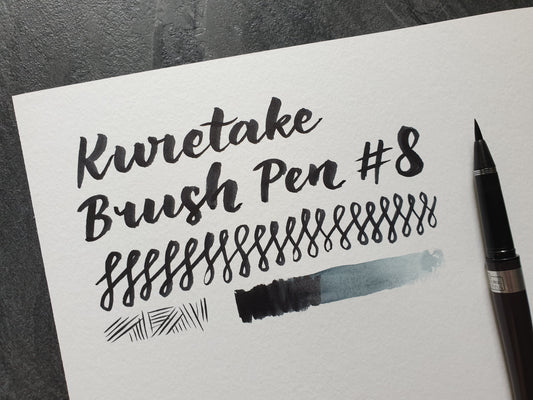 Kuretake
Brush Pen #8